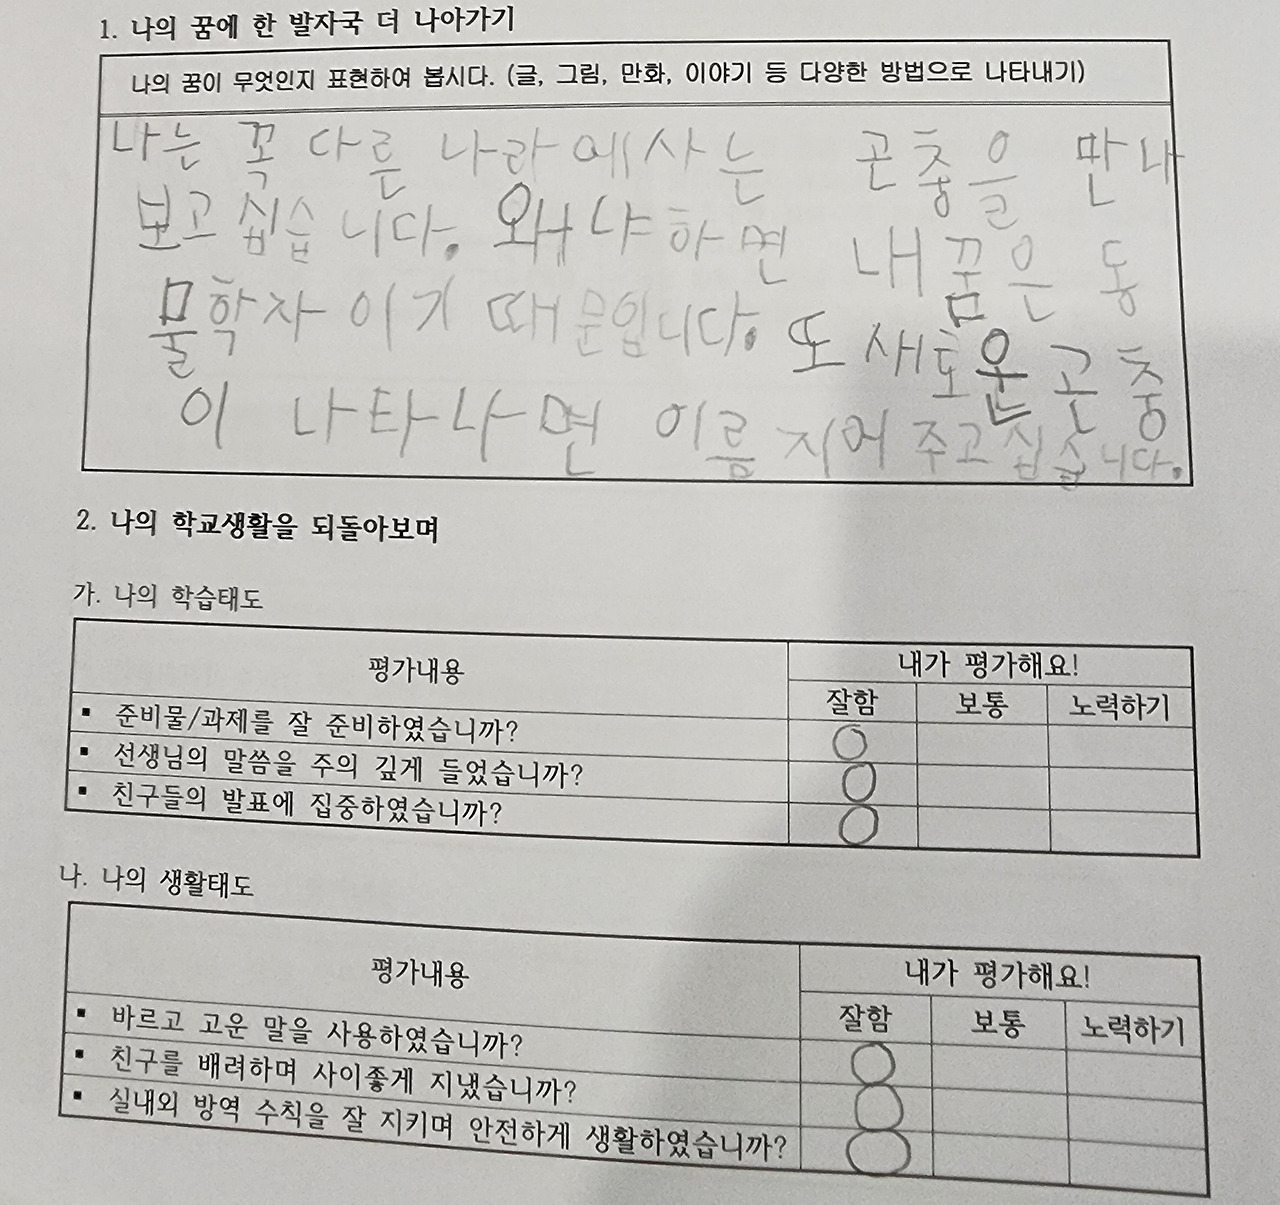 1. 나의 꿈에 한 발자국 더 나아가기
나의 꿈이 무엇인지 표현하여 봅시다. (글, 그림, 만화, 이야기 등 다양한 방법으로 나타내기)
나는 꼭 다른 나라에 사는 곤충을 만나
보고 십습니다. 왜냐하면 내 꿈은 동
물학자이기 때문입니다. 또 새로운 곤충
이 나타나면 이름 지어 주고 십습니다.
2. 나의 학교생활을 되돌아보며
가. 나의 학습태도
평가내용 내가 평가해요!
잘함 보통 노력하기
▪ 준비물/과제를 잘 준비하였습니까? ○
▪ 선생님의 말씀을 주의 깊게 들었습니까? ○
▪ 친구들의 발표에 집중하였습니까? ○
나. 나의 생활태도
평가내용 내가 평가해요!
잘함 보통 노력하기
▪ 바르고 고운 말을 사용하였습니까? ○
▪ 친구를 배려하며 사이좋게 지냈습니까? ○
▪ 실내외 방역 수칙을 잘 지키며 안전하게 생활하였습니까? ○